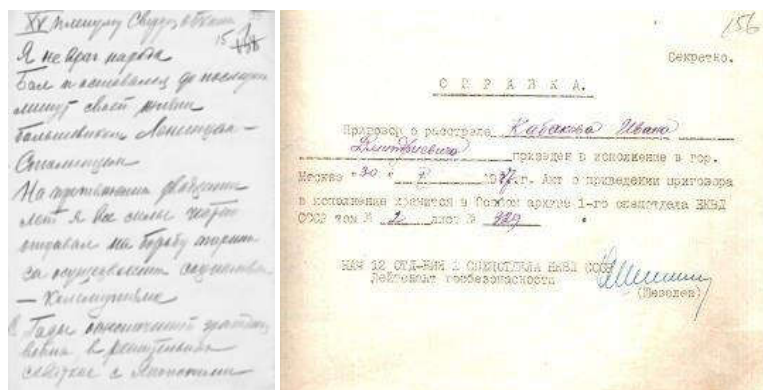 XV пленуму Свердл. обкома
Я не враг народа
Был и оставался до последних
минут своей жизни
большевиком Ленинцем –
Сталинцем
На протяжении двадцати
лет я все силы
отдавал на борьбу партии
за осуществление социализма
– Коммунизма
В Годы гражданской
войны, в
с Японскими
156
Секретно.
СПРАВКА.
Приговор о расстреле Кабакова Ивана
Дмитриевича приведен в исполнение в гор.
Москве "30" 1937г. Акт о приведении приговора
в исполнение хранится в Особом архиве 1-го спецотдела НКВД
СССР том № 2 лист № 329
НАЧ 12 ОТД-НИЯ 1 СПЕЦОТДЕЛА НКВД СССР
Лейтенант госбезопасности
(Шевелев)